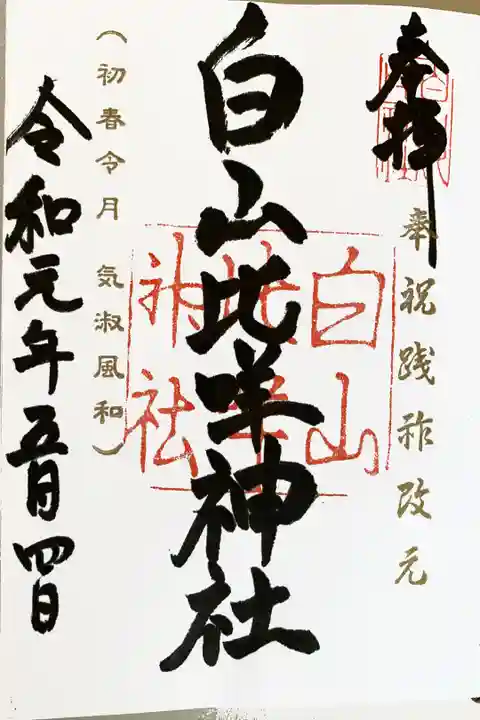 奉拝
奉祝践祚改元
白山比咩神社
白山比咩神社
(初春令月 気淑風和)
令和元年五月四日